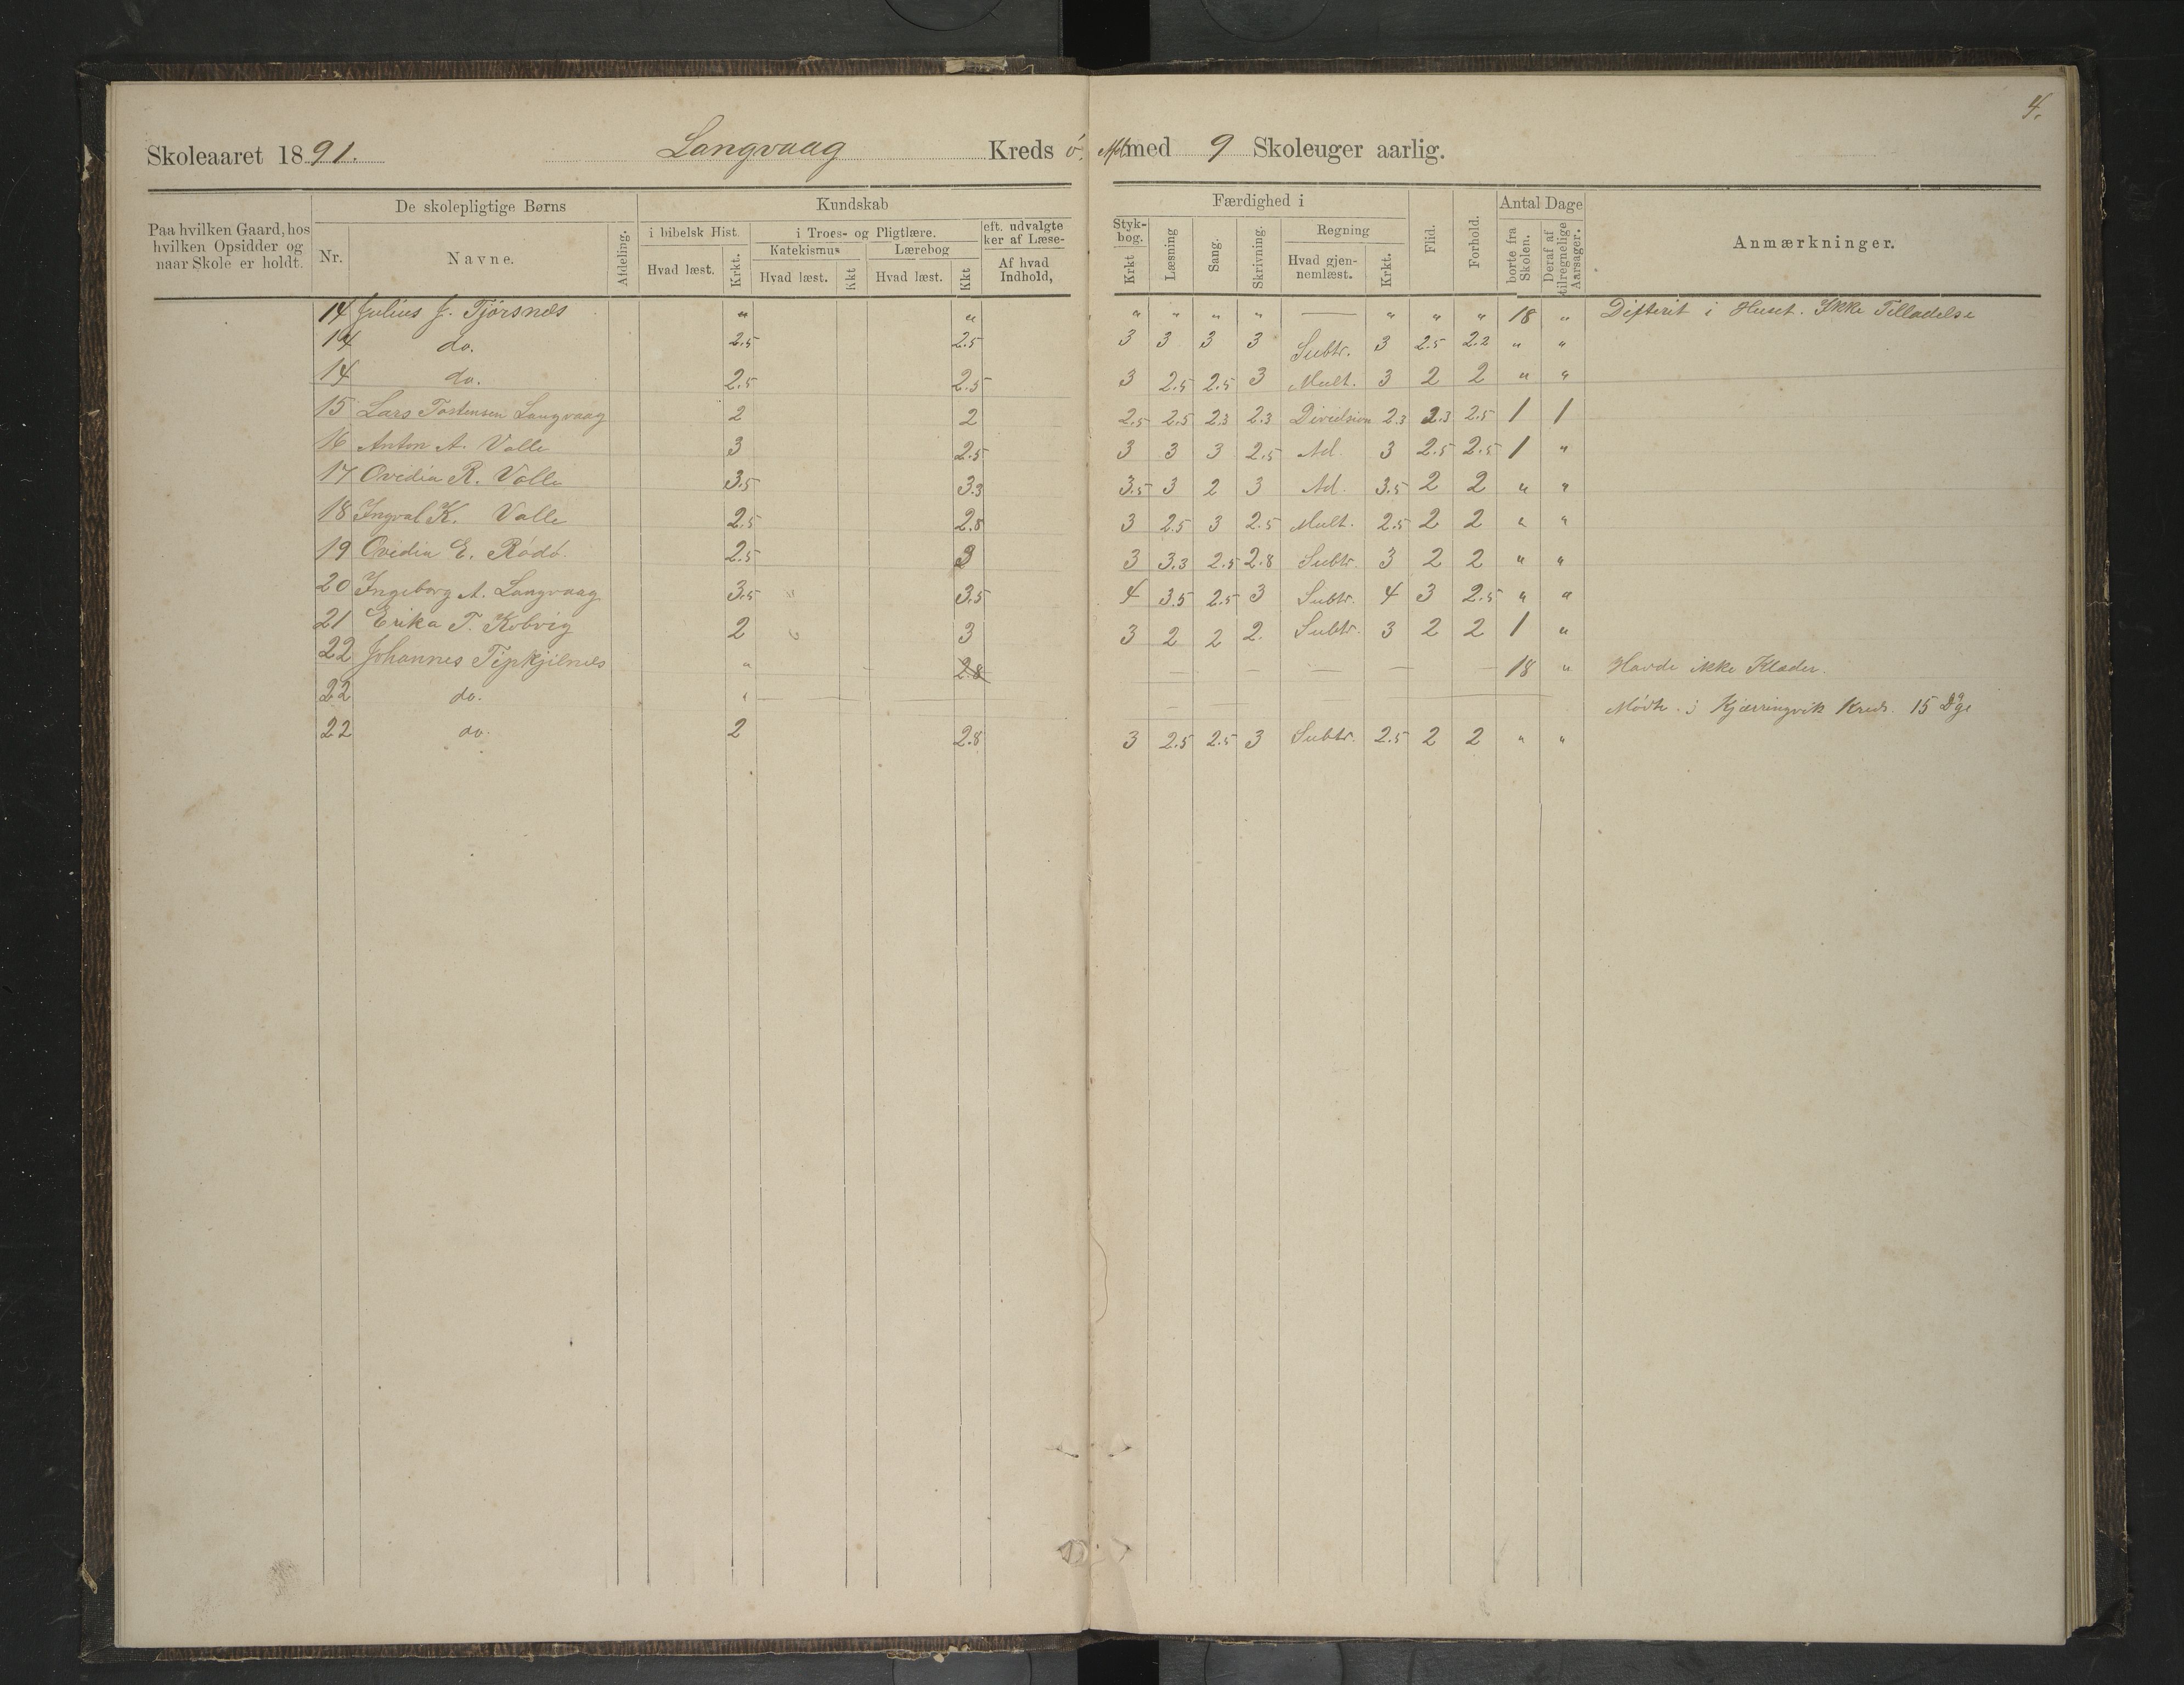 4.
Skoleaaret 1891. Langvaag Kreds ö. Afd. med 9 Skoleuger aarlig.
Paa hvilken Gaard, hos hvilken Opsidder og naar Skole er holdt.
De skolepligtige Børns
Nr. Navne. Afdeling.
Kundskab
i bibelsk Hist. i Troes- og Pligtlære. eft. udvalgte ker af Læse-
Katekismus Lærebog
Hvad læst. Krkt. Hvad læst. Kkt Hvad læst. Kkt Af hvad Indhold,
Færdighed i
Styk-bog. Krkt Læsning Sang. Skrivning. Regning Hvad gjen-nemlæst. Krkt. Flid. Forhold.
Antal Dage
borte fra Skolen. Deraf af tilregnelige Aarsager.
Anmærkninger.
14 Julius J. Tjörsnes " " " " " " — " " " 18 " Difterit i Huset. Ikke Tilladelse
14 do. 2.5 2.5 3 3 3 3 Subtr. 3 2.5 2.2 " "
14 do. 2.5 2.5 3 2.5 2.5 3 Mult. 3 2 2 " "
15 Lars Tostensen Langvaag 2 2 2.5 2.5 2.3 2.3 Dividsion 2.3 2.3 2.5 1 1
16 Anton A. Valle 3 2.5 3 3 3 2.5 Ad. 3 2.5 2.5 1 "
17 Ovedia R. Valle 3.5 3.3 3.5 3 2 3 Ad. 3.5 2 2 " "
18 Ingval K. Valle 2.5 2.8 3 2.5 3 2.5 Mult. 2.5 2 2 " "
19 Ovedia E. Rödö. 2.5 3 3 3.3 2.5 2.8 Subtr. 3 2 2 " "
20 Ingeborg A. Langvaag 3.5 " 3.5 4 3.5 2.5 3 Subtr. 4 3 2.5 " "
21 Erika T. Kobvig 2 3 3 2 2 2. Subtr. 3 2 2 1 "
22 Johannes " – 2.8 — — — — — 18 " Havde ikke Klæder.
22 do. " — — Mödte i Kjærringvik Kreds. 15 Dge
22 do. 2 2.8 3 2.5 2.5 3 Subtr. 2.5 2 2 " "